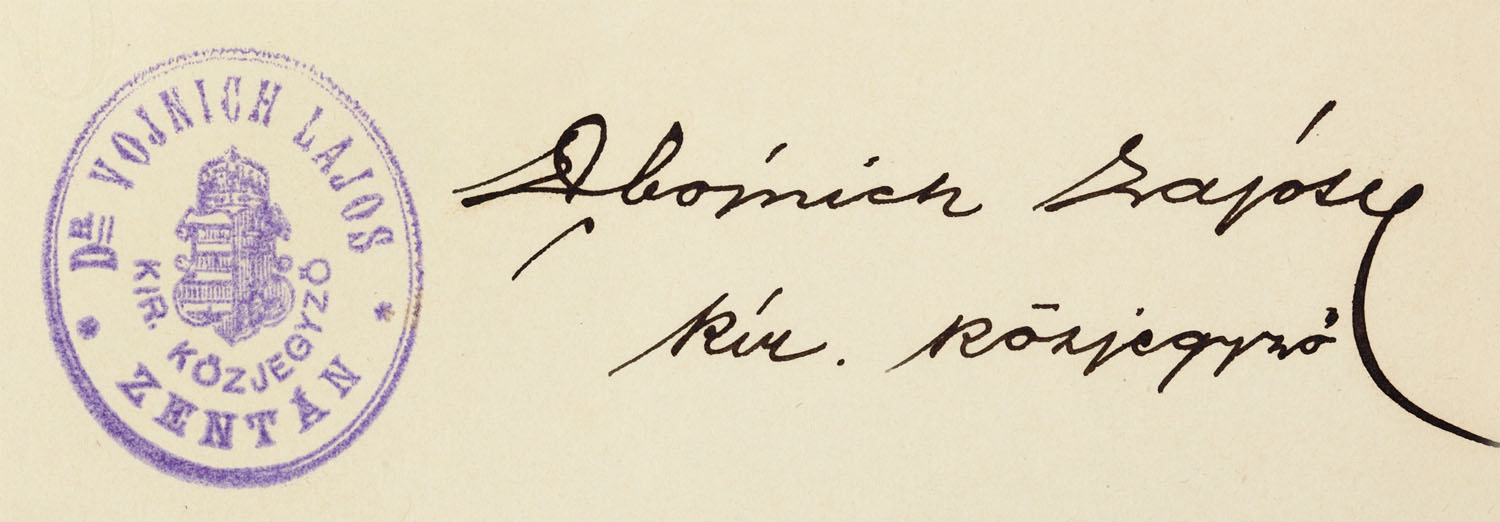 Dr VOJNICH LAJOS
KIR. KÖZJEGYZŐ
ZENTÁN
Dr Vojnich Lajos
kir. közjegyző